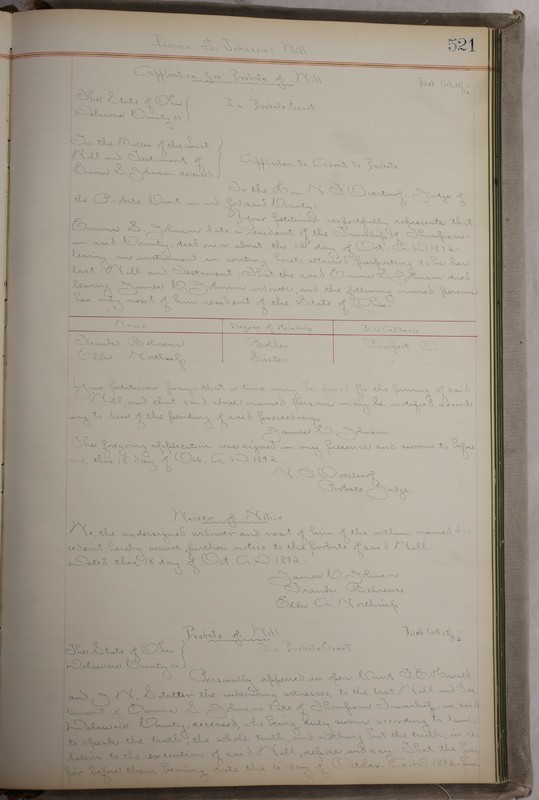 Emma S. Johnson's Will 521
Application for Probate of Will
Filed Oct 18/92
The State of Ohio
Delaware County ss
In Probate Court
In the Matter of the Last
Will and Testament of
Emma S. Johnson deceased
Application to Admit to Probate
To the Hon N. F. Overturf, Judge of
the Probate Court in and for said County.
Your petitioner respectfully represents that
Emma S. Johnson late a resident of the Township of Thompson
in said County, died on or about the day of Oct. A. D. 1892
leaving an instrument in writing, hereto attached purporting to be her
last Will and Testament, That the said Emma S. Johnson died
leaving James W. Johnson widower, and the following named persons
her only next of kin resident of the State of Ohio:
Name Degree of Kinship P. O. Address
Frank Behrens Brother Prospect O
Ella Northup Sister "
Your petitioner prays that a time may be fixed for the proving of said
Will, and that said above named persons may be notified accord-
ing to law of the pending of said proceedings.
James W. Johnson
The foregoing application was signed in my presence and sworn to before
me, this 18 day of Oct. A. D. 1892.
N. F. Overturf
Probate Judge
Waiver of Notice
We, the undersigned widower and next of kin of the within named de-
cedent hereby waive further notice to the probate of said Will
Dated this 18 day of Oct. A. D. 1892.
James W. Johnson
Frank Behrens
Ella A. Northup
Probate of Will
Filed Oct 18/92
The State of Ohio
Delaware County ss
In Probate Court
Personally appeared in open Court
and the subscribing witnesses to the last Will and Tes-
tament of Emma S. Johnson late of Thompson Township, in said
Delaware County, deceased, who being duly sworn according to law,
to speak the truth, the whole truth, and nothing but the truth, in re-
lation to the execution of said Will, depose and say: That the pa-
per before them bearing date the 6 day of October A. D. 1892,